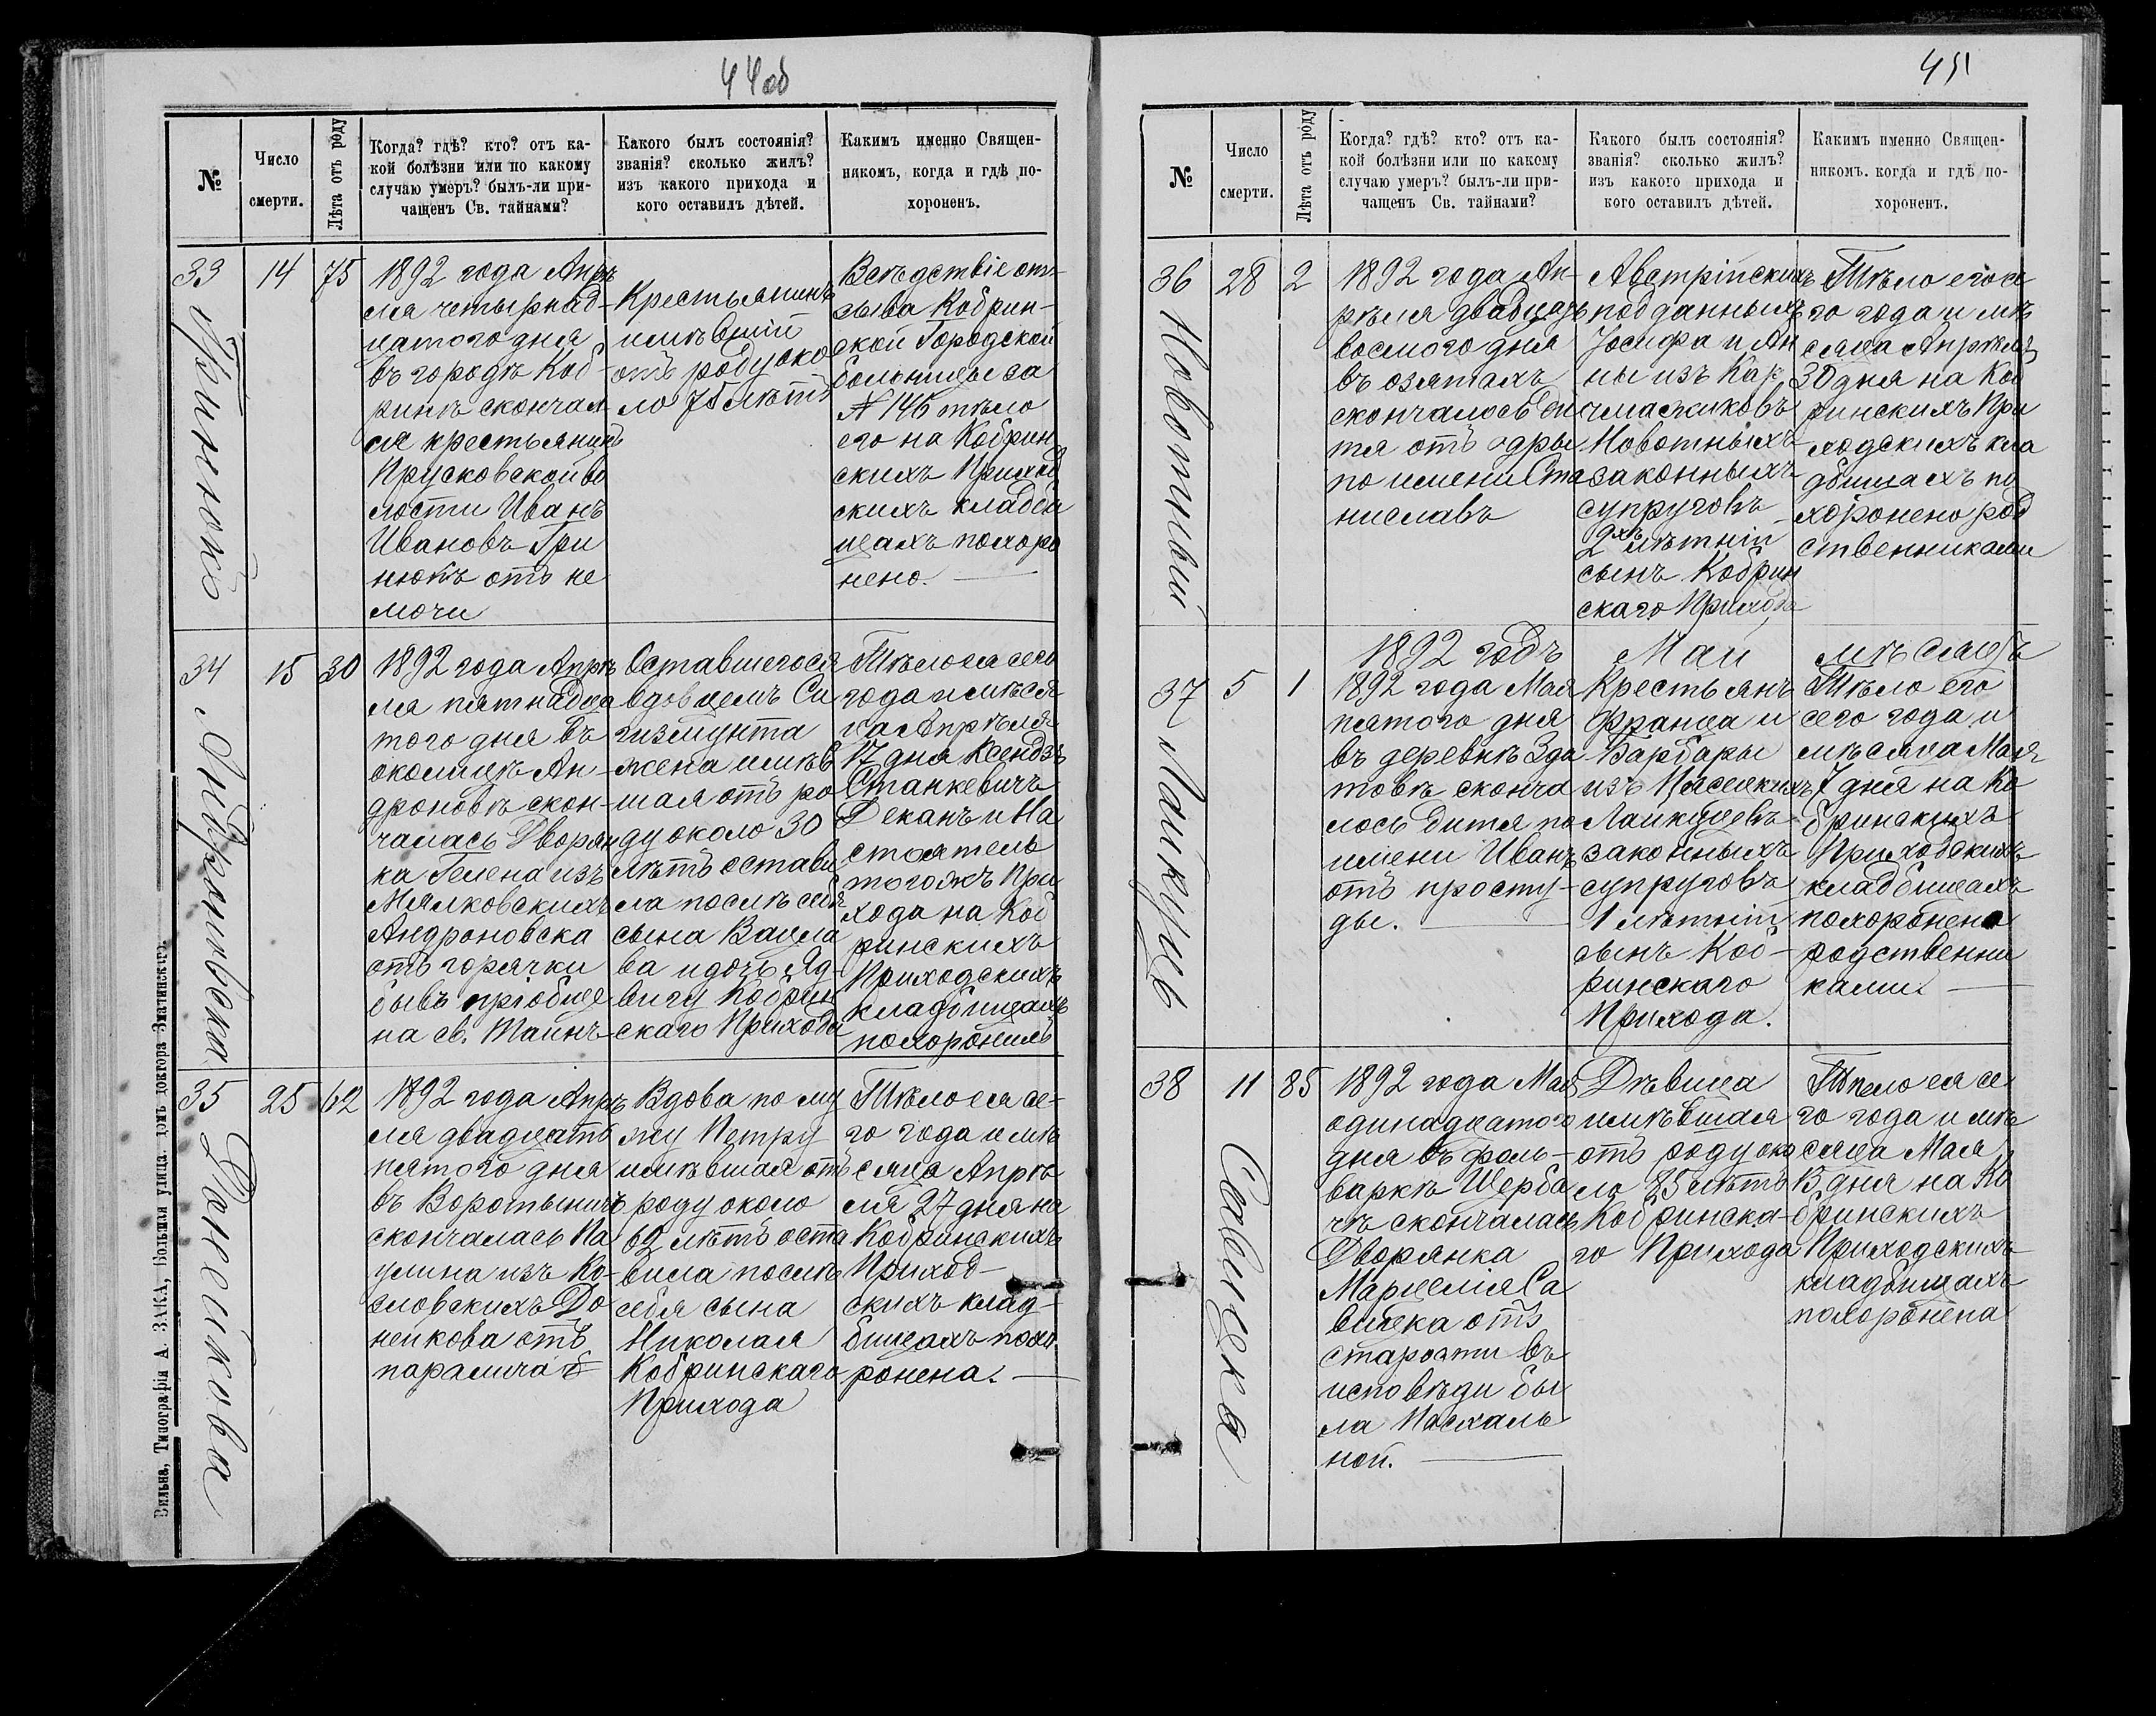 44об
№
Число
смерти.
Лѣта отъ роду
Когда? гдѣ? кто? отъ ка-
кой болѣзни или по какому
случаю умеръ? былъ-ли при-
чащенъ Св. тайнами?
Какого былъ состоянія?
званія? сколько жилъ?
изъ какого прихода и
кого оставилъ дѣтей.
Каким​ъ именно Священ-
никомъ, когда и гдѣ по-
хороненъ.
33
Гринюкъ
14
75
1892 года Апрѣ
ля четырнад-
цатого дня
въ городѣ Коб
ринѣ скончал
ся крестьянинъ
Прусковской во
лости Иванъ
Ивановъ Гри
нюкъ отъ не
мочи
Крестьянинъ
имѣвший
отъ роду око
ло 75 лѣтъ
Вслѣдствіе от-
зыва Кобрин-
ской Городской
больницы за
№ 146 тѣло
его на Кобрин
скихъ Приход
скихъ кладби
щахъ похоро
нено.
34
Андроновска
15
30
1892 года Апрѣ
ля пятнадца
того дня въ
околицѣ Ан-
дроновѣ скон-
чалась Дворян
ка Гелена изъ
Мялковскихъ
Андроновска
отъ горячки
бывъ пріобще
на св. Таинъ
Оставшегося
вдовцемъ Си
гизмунта
жена имѣв
шая отъ ро
ду около 30
лѣтъ остави
ла послѣ себя
сына Вацла
ва и дочь Яд-
вигу Кобрин
скаго Прихода
Тѣло ея сего
года и мѣся
ца Апрѣля
17 дня Ксендзъ
Станкевичъ
Деканъ и На
стоятель
тогожъ При
хода на Коб
ринскихъ
Приходскихъ
кладбищахъ
похоронилъ
35
Донейкова
25
62
1892 года Апрѣ
ля двадцать
пятого дня
въ Воротыничѣ
скончалась Па
улина изъ Ко-
зловскихъ До
нейкова отъ
паралича
Вдова по му
жу Петру
имѣвшая отъ
роду около
62 лѣтъ оста
вила послѣ
себя сына
Николая
Кобринскаго
Прихода
Тѣло ея се-
го года и мѣ
сяца Апрѣ
ля 27 дня на
Кобринскихъ
Приход-
скихъ клад-
бищахъ похо
ронена.
Вильна, Типографія А. ЗАКА, Большая улица, домъ доктора Знатинскаго.
45
№
Число
смерти.
Лѣта отъ роду
Когда? гдѣ? кто? отъ ка-
кой болѣзни или по какому
случаю умеръ? былъ-ли при-
чащенъ Св. тайнами?
Какого былъ состоянія?
званія? сколько жилъ?
изъ какого прихода и
кого оставилъ дѣтей.
Какимъ именно Священ-
никомъ. когда и гдѣ по-
хороненъ.
36
Новотный
28
2
1892 года Ап-
рѣля двадцать
восмого дня
въ озятахъ
скончалось ди
тя отъ одры
по имени Ста
ниславъ
Австрійскихъ
подданныхъ
Іосифа и Ан
ны изъ Кар
Новотныхъ
законныхъ
супруговъ
2хъ лѣтній
сынъ Кобрин
скаго Прихода
Тѣло его се
го года и мѣ
сяца Апрѣля
30 дня на Коб
ринскихъ При
ходскихъ кла
дбищахъ по
хоронено род
ственниками
1892 годъ Май мѣсяцъ
37
Лайкуцъ
5
1
1892 года Мая
пятого дня
въ деревнѣ Зда
товѣ сконча
лось дитя по
имени Иванъ
отъ просту-
ды.
Крестьянъ
Франца и
Барбары
изъ
Лайкуцевъ
законныхъ
супруговъ
1 лѣтній
сынъ Коб-
ринскаго
Прихода.
Тѣло его
сего года и
мѣсяца Мая
7 дня на Ко
бринскихъ
Приходскихъ
кладбищахъ
похоронено
родственни
ками.
38
Савицка
11
85
1892 года Мая
одинадцатого
дня въ фоль-
варкѣ Щерба
чѣ скончалась
Дворянка
Марцелія Са
вицка отъ
старости въ
исповѣди бы
ла Пасхаль
ной.
Дѣвица
имѣвшая
отъ роду око
ло 85 лѣтъ
Кобринска-
го Прихода
Тѣло ея се
го года и мѣ
сяца Мая
13 дня на Ко
бринскихъ
Приходскихъ
кладбищахъ
похоронена